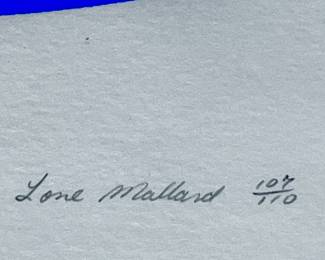 Lone Mallard 107/110